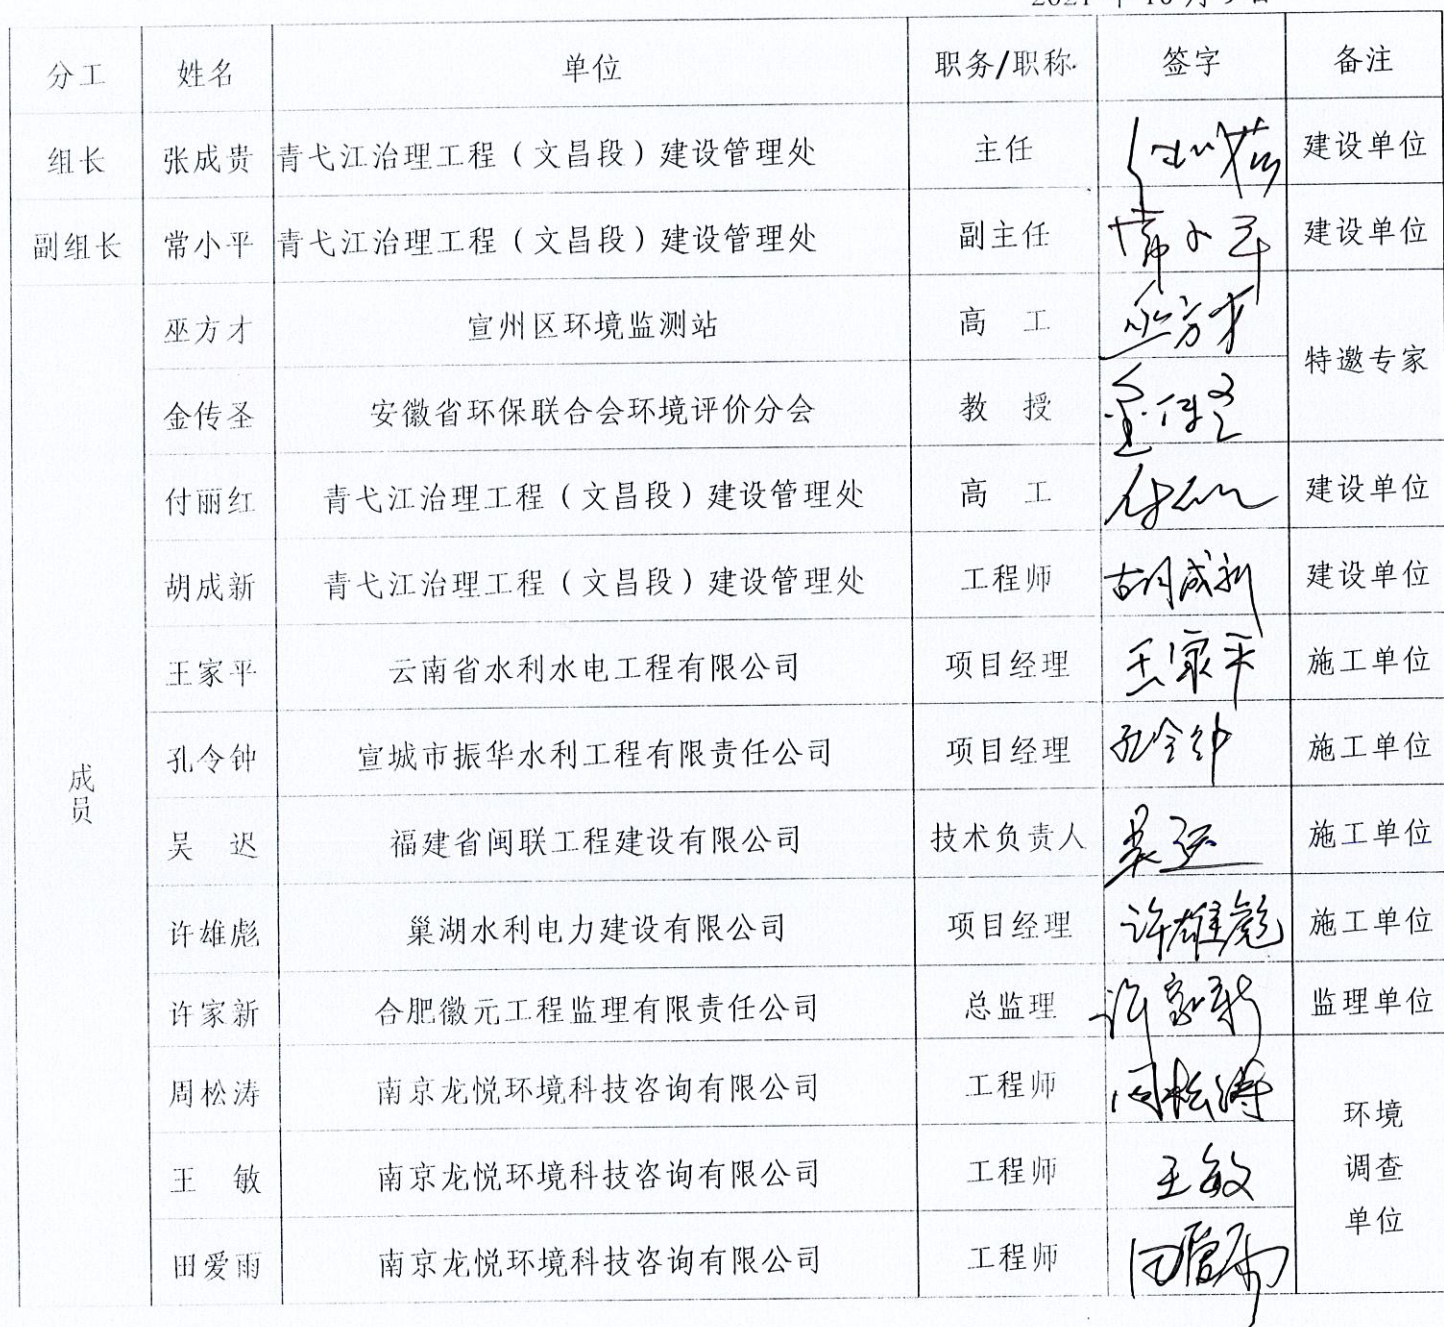 分工 姓名 单位 职务/职称 签字 备注
组长 张成贵 青弋江治理工程（文昌段）建设管理处 主任 建设单位
副组长 常小平 青弋江治理工程（文昌段）建设管理处 副主任 常小平 建设单位
巫方才 宣州区环境监测站 高 工 巫方才
特邀专家
金传圣 安徽省环保联合会环境评价分会 教 授 金传圣
付丽红 青弋江治理工程（文昌段）建设管理处 高 工 建设单位
胡成新 青弋江治理工程（文昌段）建设管理处 工程师 胡成新 建设单位
王家平 云南省水利水电工程有限公司 项目经理 王家平 施工单位
孔令钟 宣城市振华水利工程有限责任公司 项目经理 孔令钟 施工单位
成员
吴 迟 福建省闽联工程建设有限公司 技术负责人 吴迟 施工单位
许雄彪 巢湖水利电力建设有限公司 项目经理 许雄彪 施工单位
许家新 合肥徽元工程监理有限责任公司 总监理 许家新 监理单位
周松涛 南京龙悦环境科技咨询有限公司 工程师 周松涛
环境
王 敏 南京龙悦环境科技咨询有限公司 工程师 王敏
调查
单位
田爱雨 南京龙悦环境科技咨询有限公司 工程师 田爱雨